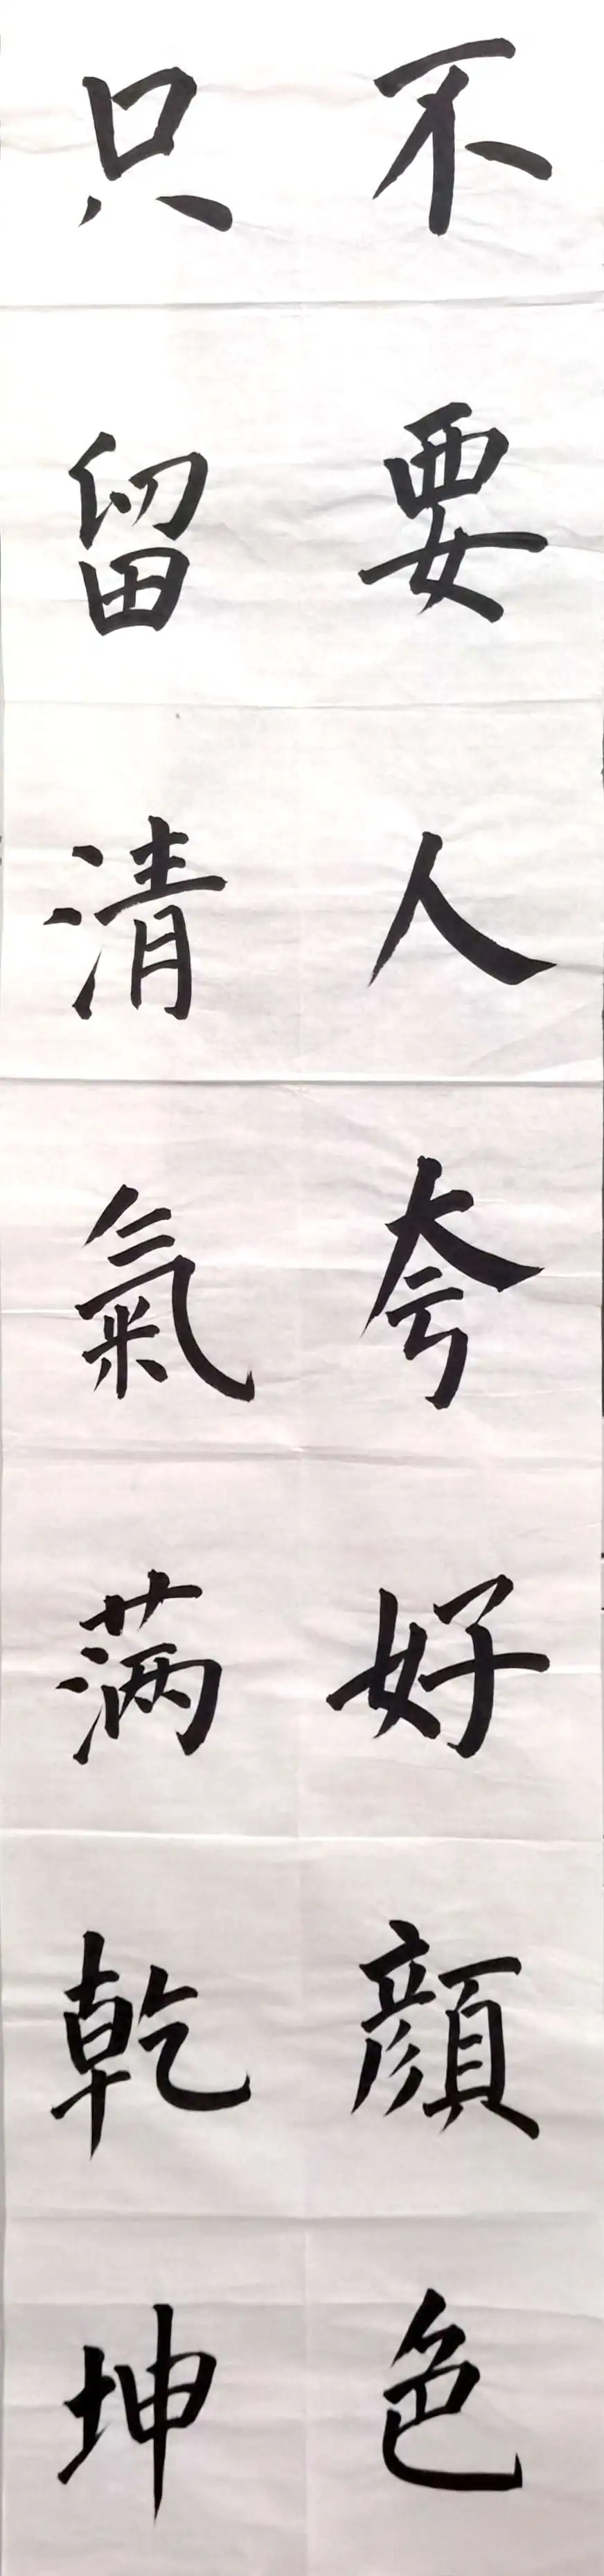 不要人夸好顔色
只留清氣満乾坤